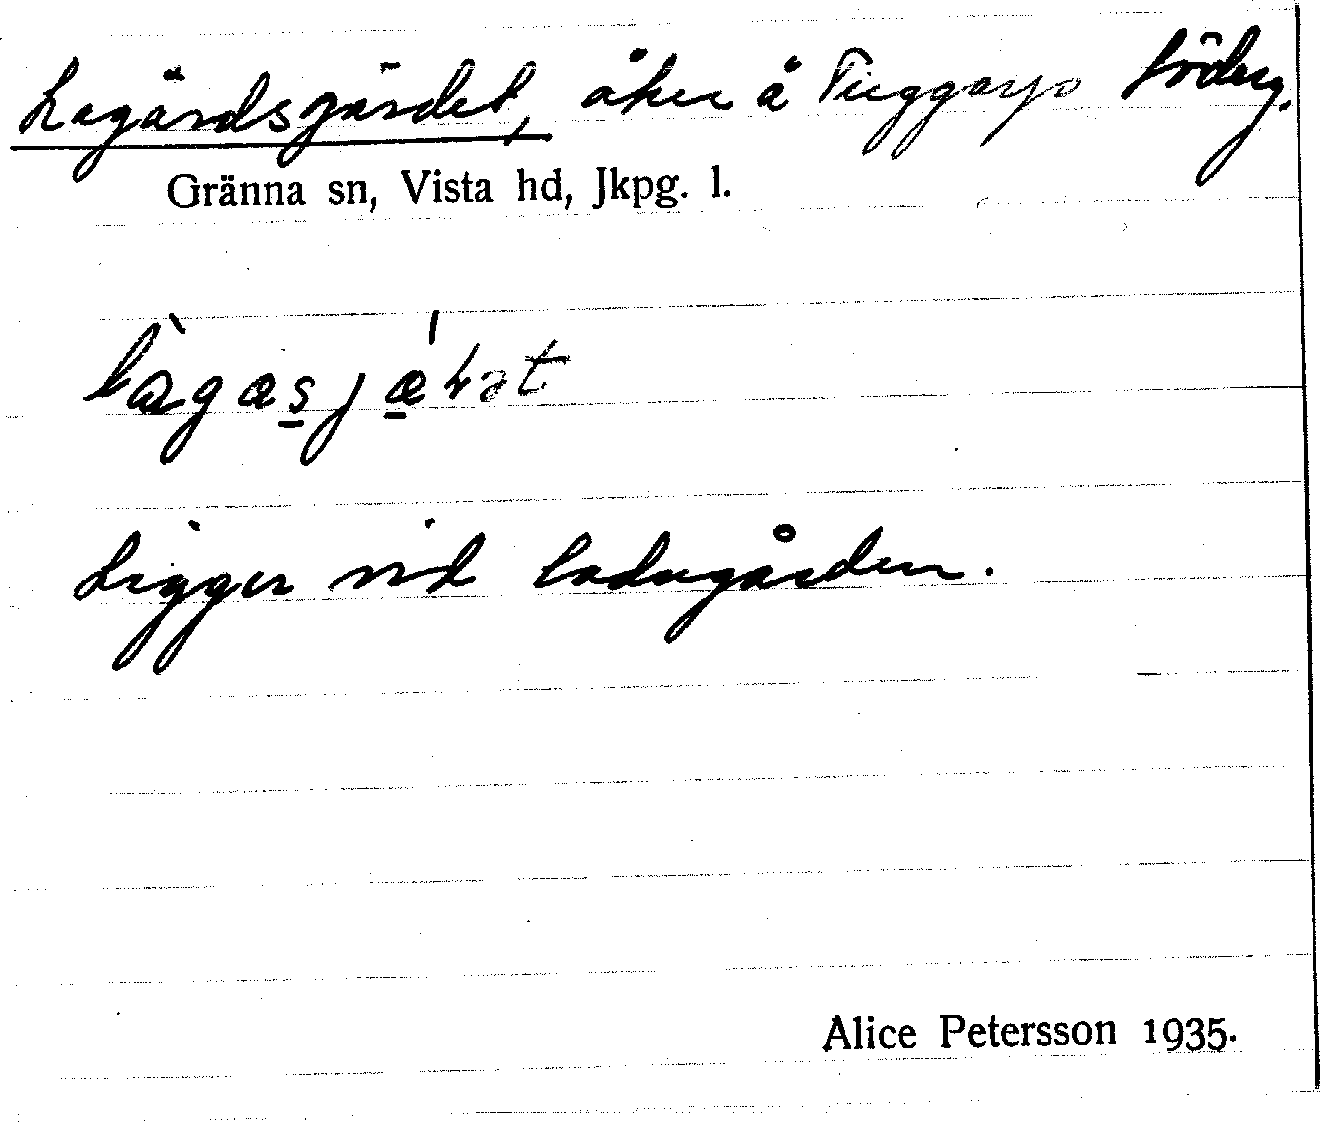 Lagårdsgärdet, åker å Tuggarp Söderg.
Gränna sn, Vista hd, Jkpg. l.
Ligger vid ladugården.
Alice Petersson 1935.